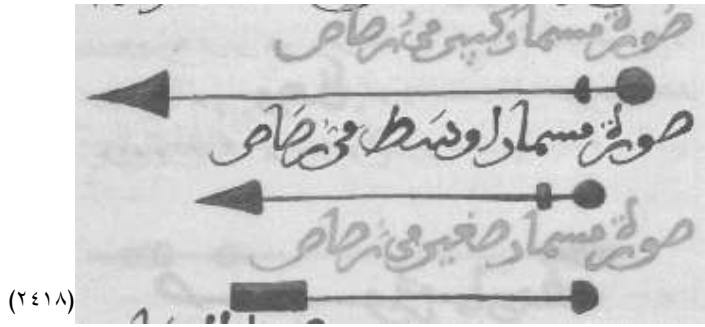 صورة مسمار كبير من رصاص
صورة مسمار اوسط من رصاص
صورة مسمار صغير من رصاص
(٢٤١٨)